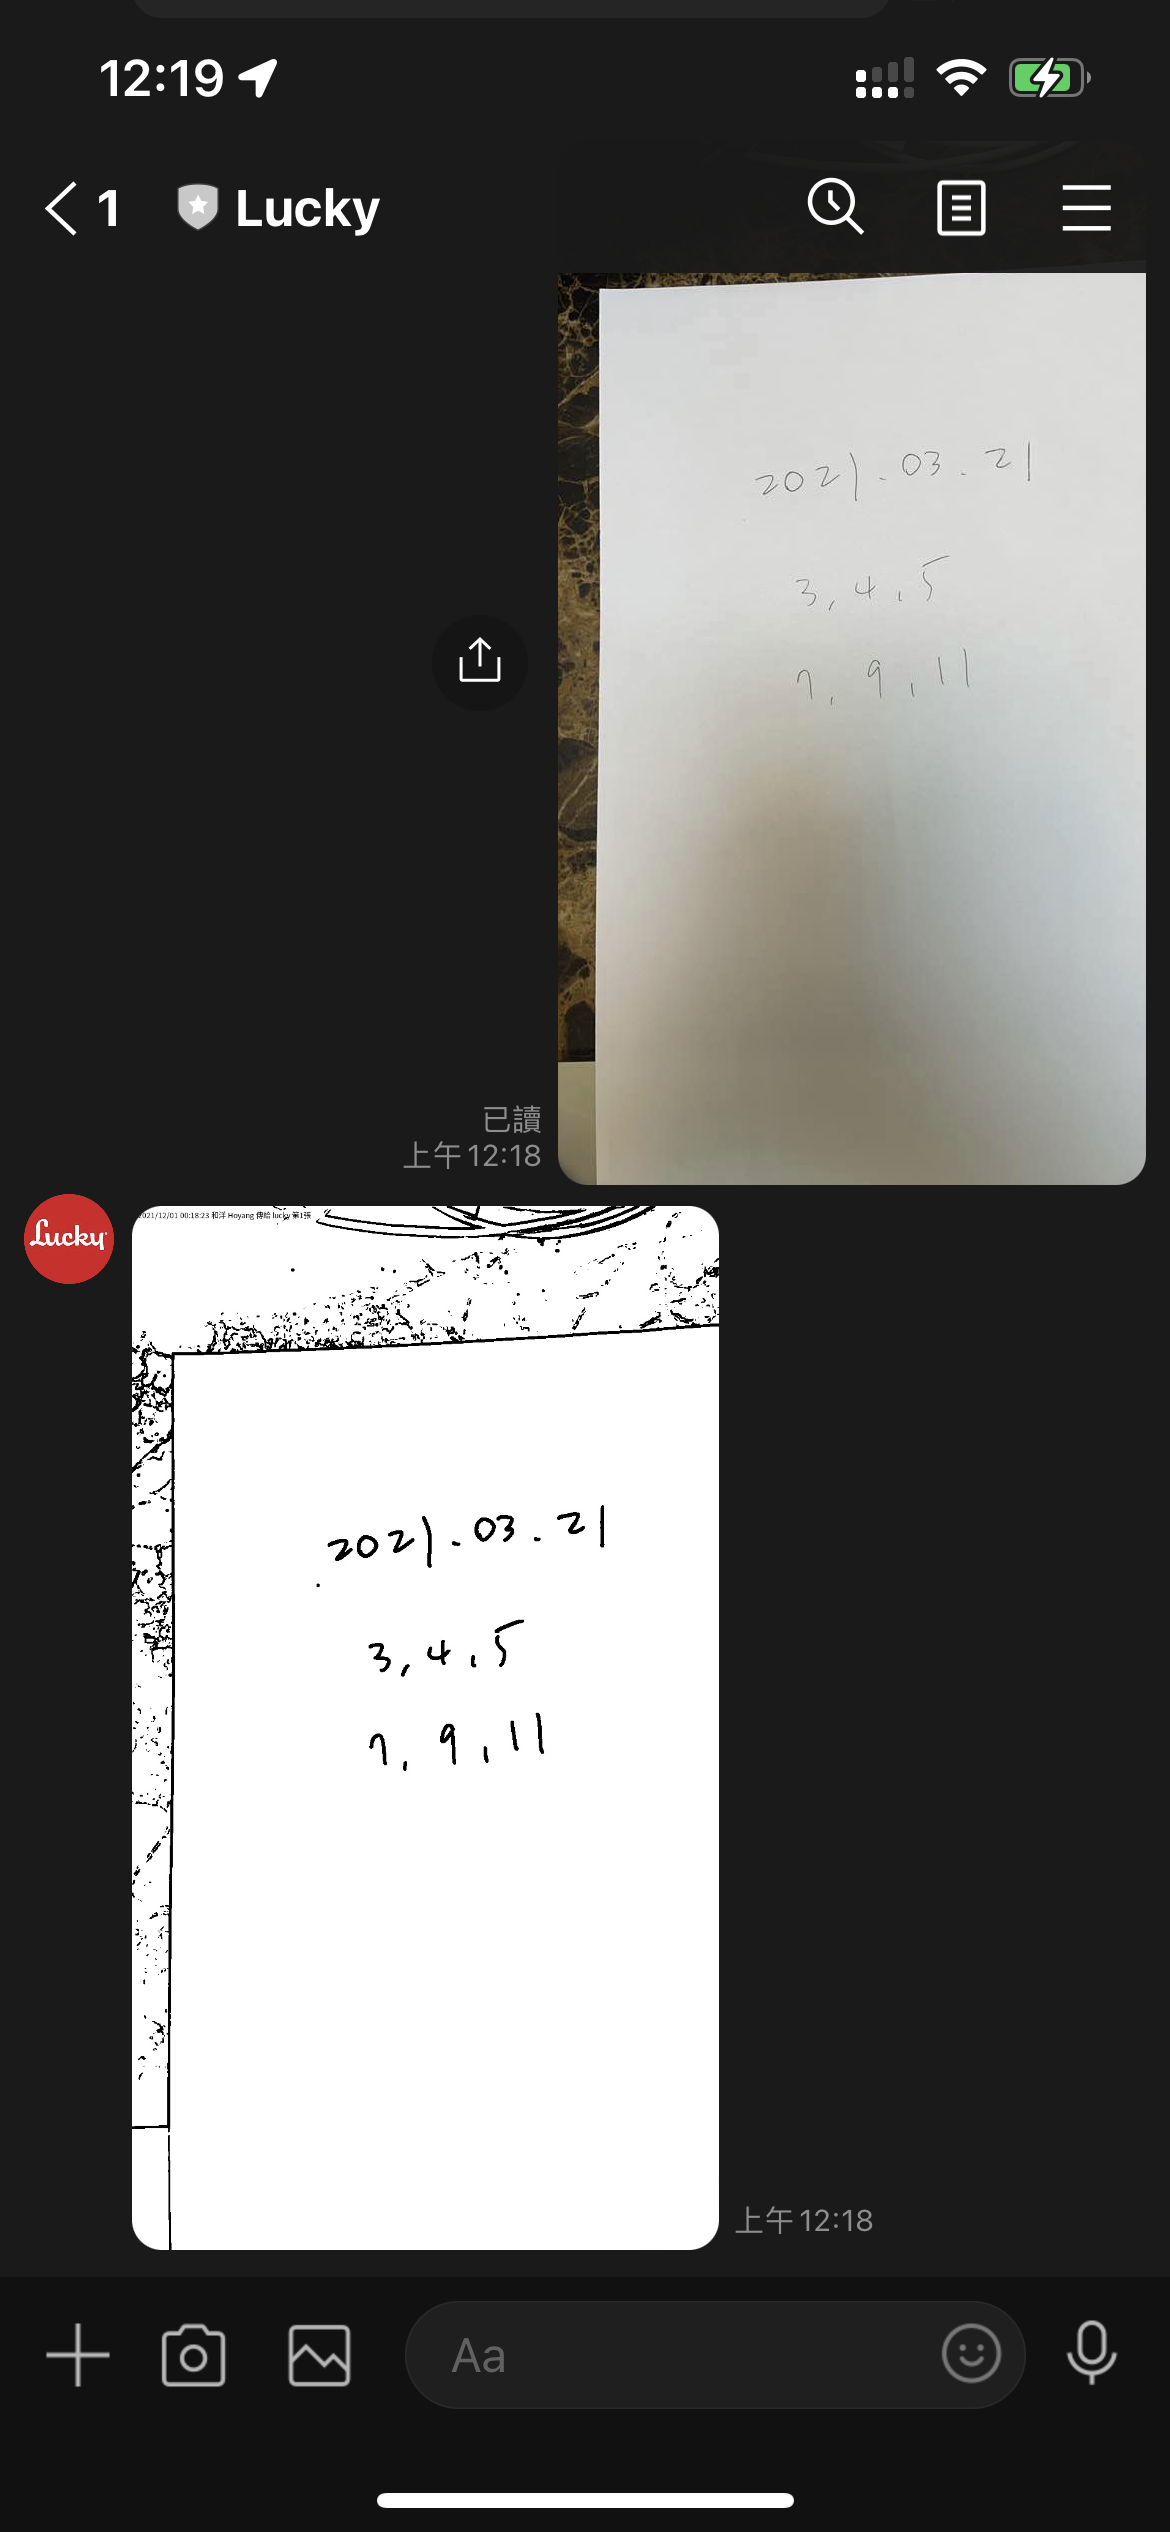 12:19
1 Lucky
2021.03.21
3, 4, 5
7, 9, 11
已讀
上午 12:18
Lucky
2021/12/01 00:18:23 和洋 Hoyang 傳給 lucky 第1張
2021.03.21
3, 4, 5
7, 9, 11
上午 12:18
Aa